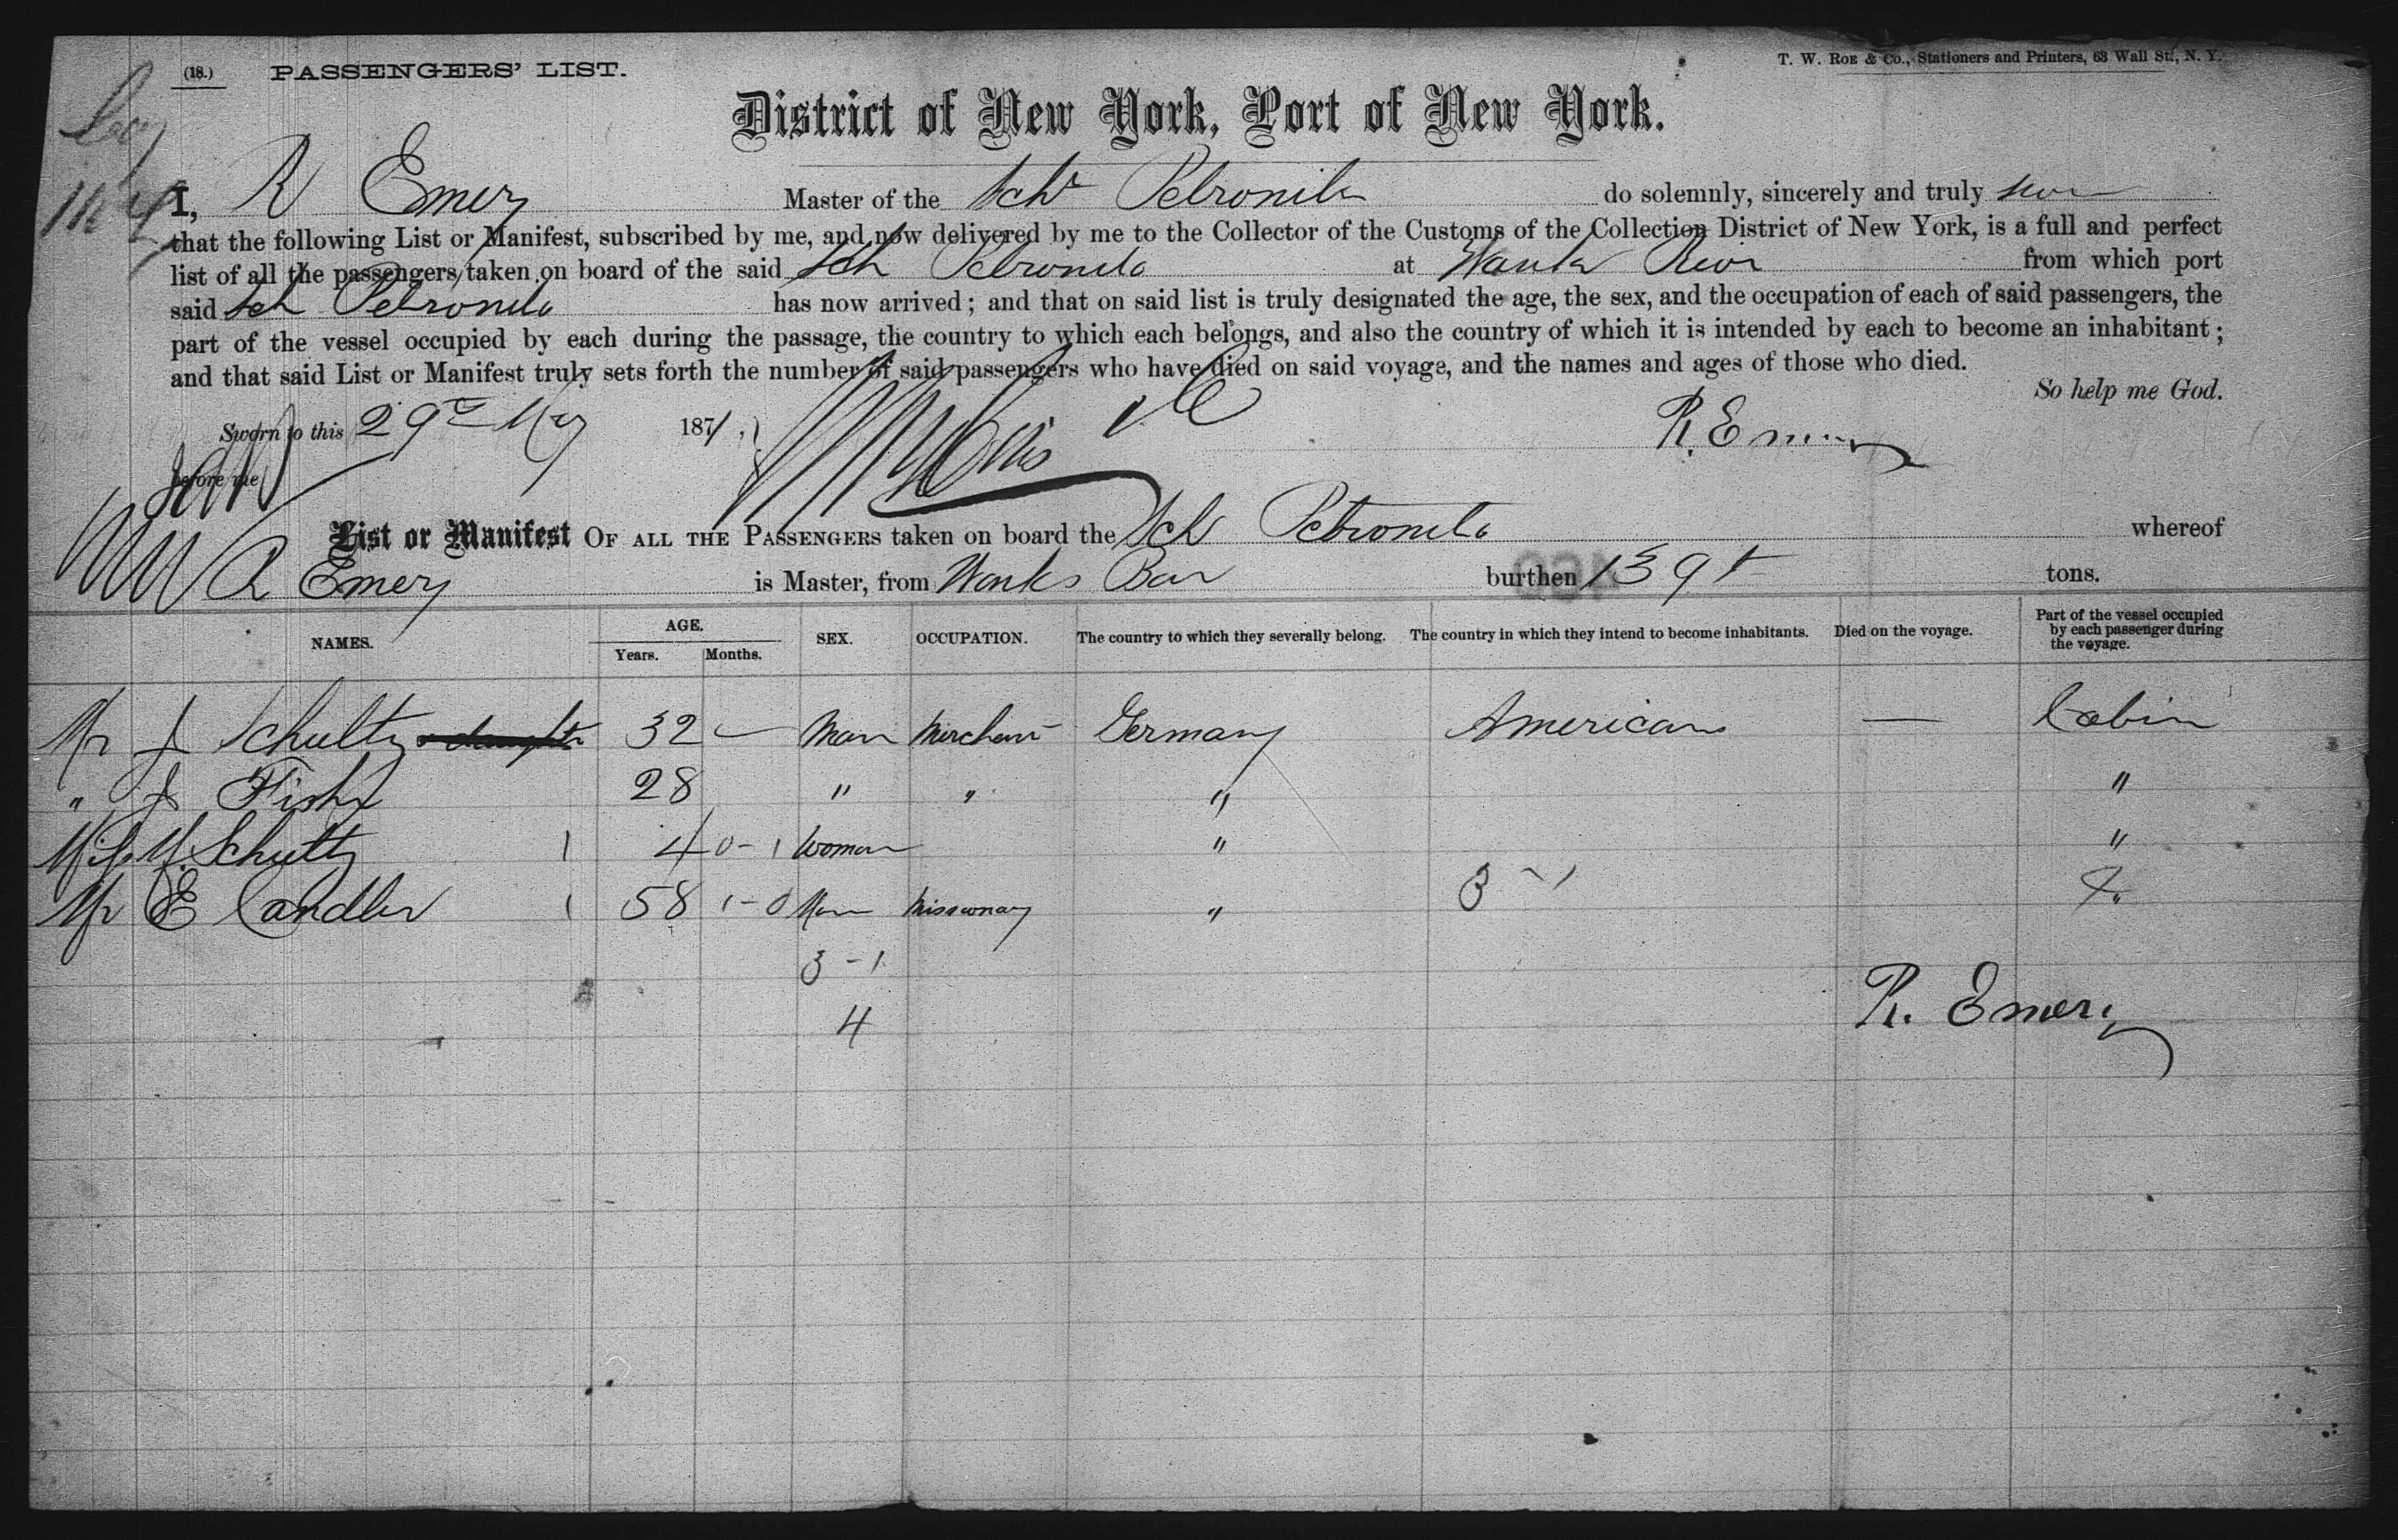 (18.) PASSENGERS' LIST.
T. W. ROE & Co., Stationers and Printers, 63 Wall St., N. Y.
District of New York, Port of New York.
I, R Emery Master of the Schr Petronila do solemnly, sincerely and truly swear
that the following List or Manifest, subscribed by me, and now delivered by me to the Collector of the Customs of the Collection District of New York, is a full and perfect
list of all the passengers taken on board of the said Sch Petronila at Wanks River from which port
said Sch Petronila has now arrived; and that on said list is truly designated the age, the sex, and the occupation of each of said passengers, the
part of the vessel occupied by each during the passage, the country to which each belongs, and also the country of which it is intended by each to become an inhabitant;
and that said List or Manifest truly sets forth the number of said passengers who have died on said voyage, and the names and ages of those who died.
So help me God.
Sworn to this 29th May 1871,
R. Emery
before me
List or Manifest OF ALL THE PASSENGERS taken on board the Sch Petronila whereof
R Emery is Master, from Wanks Bar burthen 139 tons.
NAMES. AGE. Years. Months. SEX. OCCUPATION. The country to which they severally belong. The country in which they intend to become inhabitants. Died on the voyage. Part of the vessel occupied by each passenger during the voyage.
Mr J Schultz & daughter 32 — Man Merchant Germany Americans — Cabin
" J Fisher 28 " " " "
Miss M. Schultz 1 4 0-1 Woman " "
Mr E Candler 1 58 1-0 Man Missionary " 3-1 "
3-1
4
R. Emery